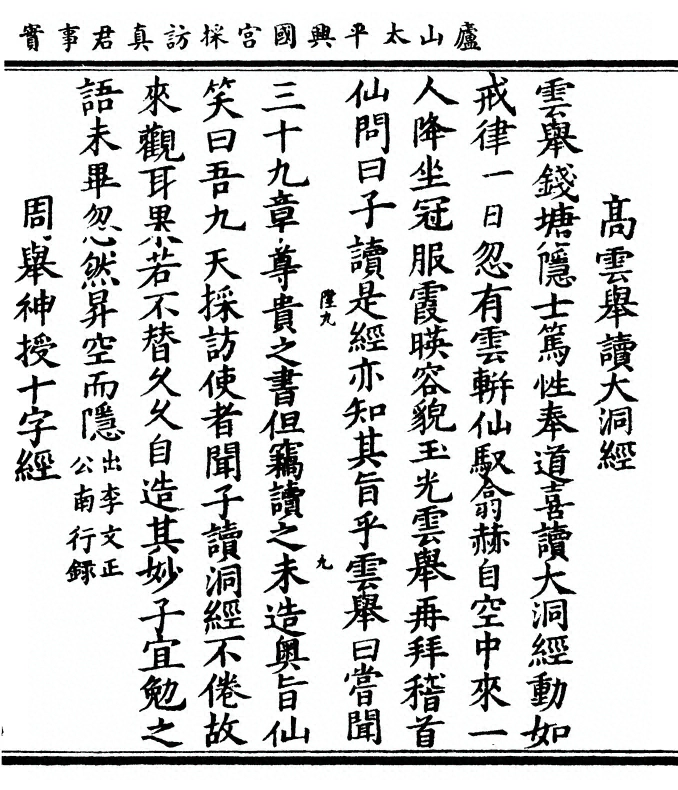 廬山太平興國宮採訪真君事實
高雲舉讀大洞經
雲舉錢塘隱士篤性奉道喜讀大洞經動如
戒律一日忽有雲輧仙馭翕赫自空中來一
人降坐冠服霞暎容貌玉光雲舉再拜稽首
仙問曰子讀是經亦知其旨乎雲舉曰嘗聞
陞九
九
三十九章尊貴之書但竊讀之未造奧旨仙
笑曰吾九天採訪使者聞子讀洞經不倦故
來觀耳果若不替久久自造其妙子宜勉之
語未畢忽然昇空而隱出李文正
公南行録
周舉神授十字經